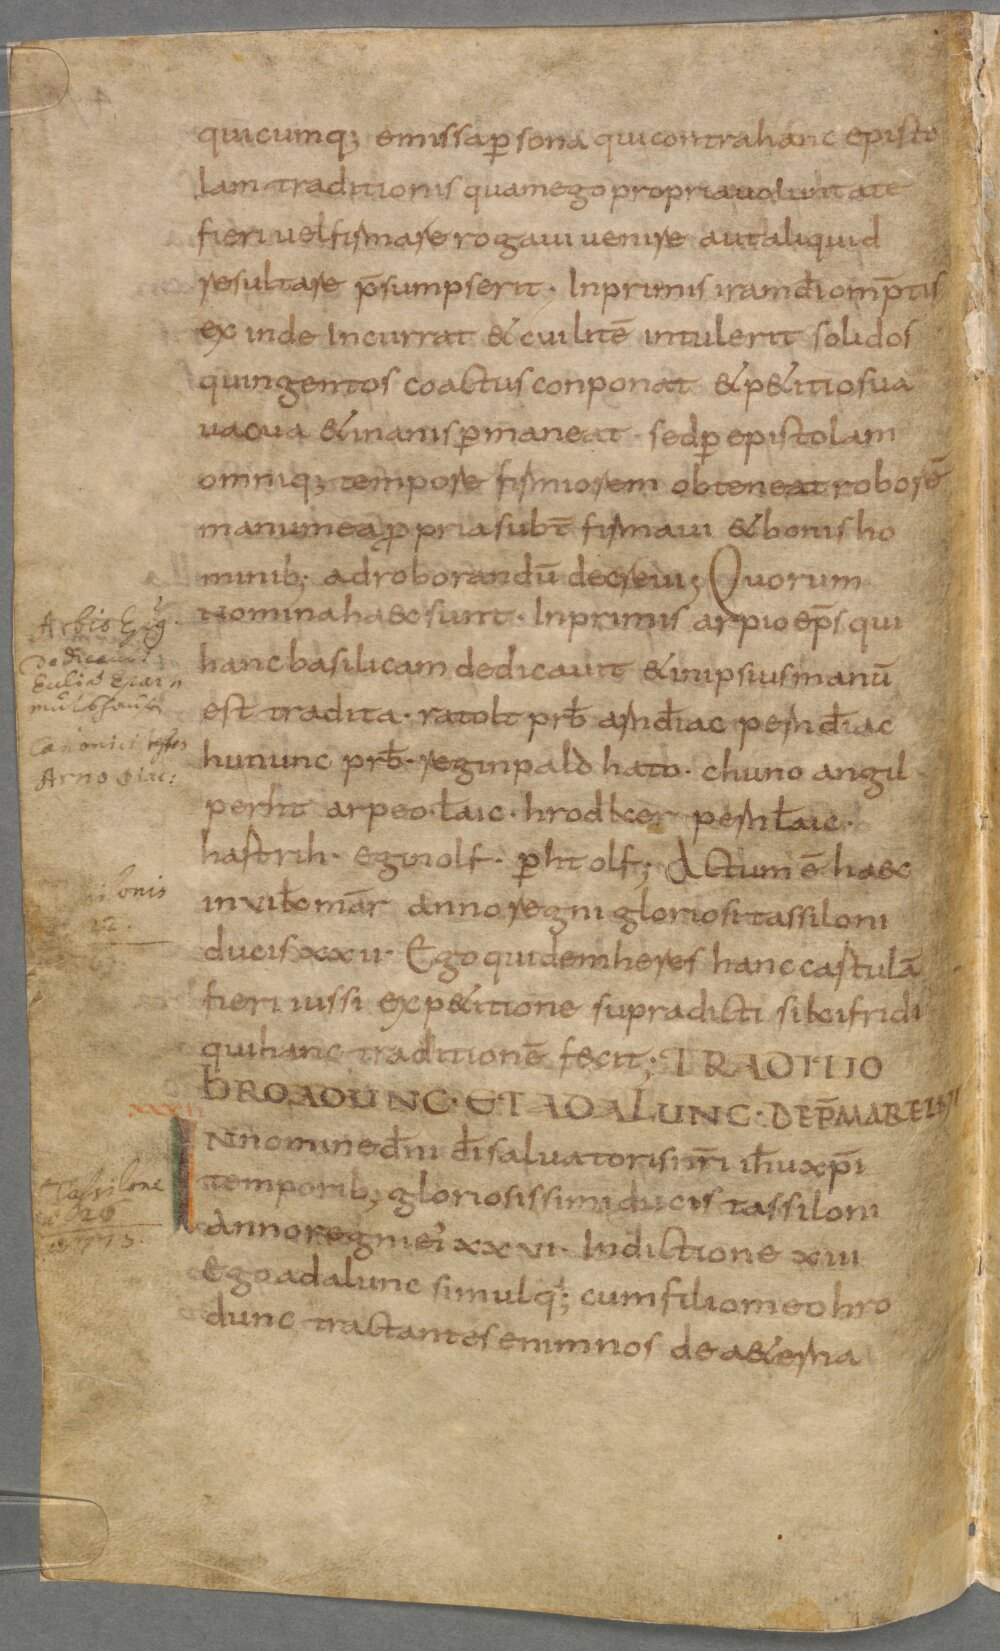 quicumq; emissa p̄sona qui contra hánc episto
lam traditionis quam ego propria uoluntate
fieri uel firmare rogaui uenire aut aliquid
resultare p̄sumpserit · Inprimis iram dī omp̄tis
ex inde Incurrat & cui litē intulerit solidos
quingentos coactus conponat & p&itio sua
uacua & inanis p̄maneat · sed p̄ epistolam
omniq; tempore firmiorem obteneat roborē
manu mea p̱pria subt̄ firmaui & bonis ho
minib; ad roborandū decreui; Quorum
Nomina haec sunt · Inprimis arpio ep̄s qui
hanc basilicam dedicauit & in ipsius manū
est tradita · ratolt prb̄ arn diac̄ pern diac̄
hununc prb̄ · reginpald hato · chuno angil
perht arpeo · laic̄ · hrodker pern laic̄ ·
hastrih · eginolf · p̄htolf; Actum ē haec
in uilla omār anno regni gloriosi tassiloni
ducis xxii · Ego quidem heres hanc castulā
fieri iussi ex p&itione supradicti sikifridi
qui hanc traditionē fecit; TRADITIO
hROADUNC · ET ADALUNC · DE P̄MARTINI
xxxii
IN nomine dn̄i dī saluatoris nr̄i ih̄u xp̄i
temporib; gloriosissimi ducis tassiloni
Anno regni eí xxvi · Indictione xiii
Ego adalunc simulq; cum filio meo hro
dunc tractantes enim nos de aeterna
Arbio
Dedicauit
Canonici testes
Arno diac:
onis
22.
Tassilone
26